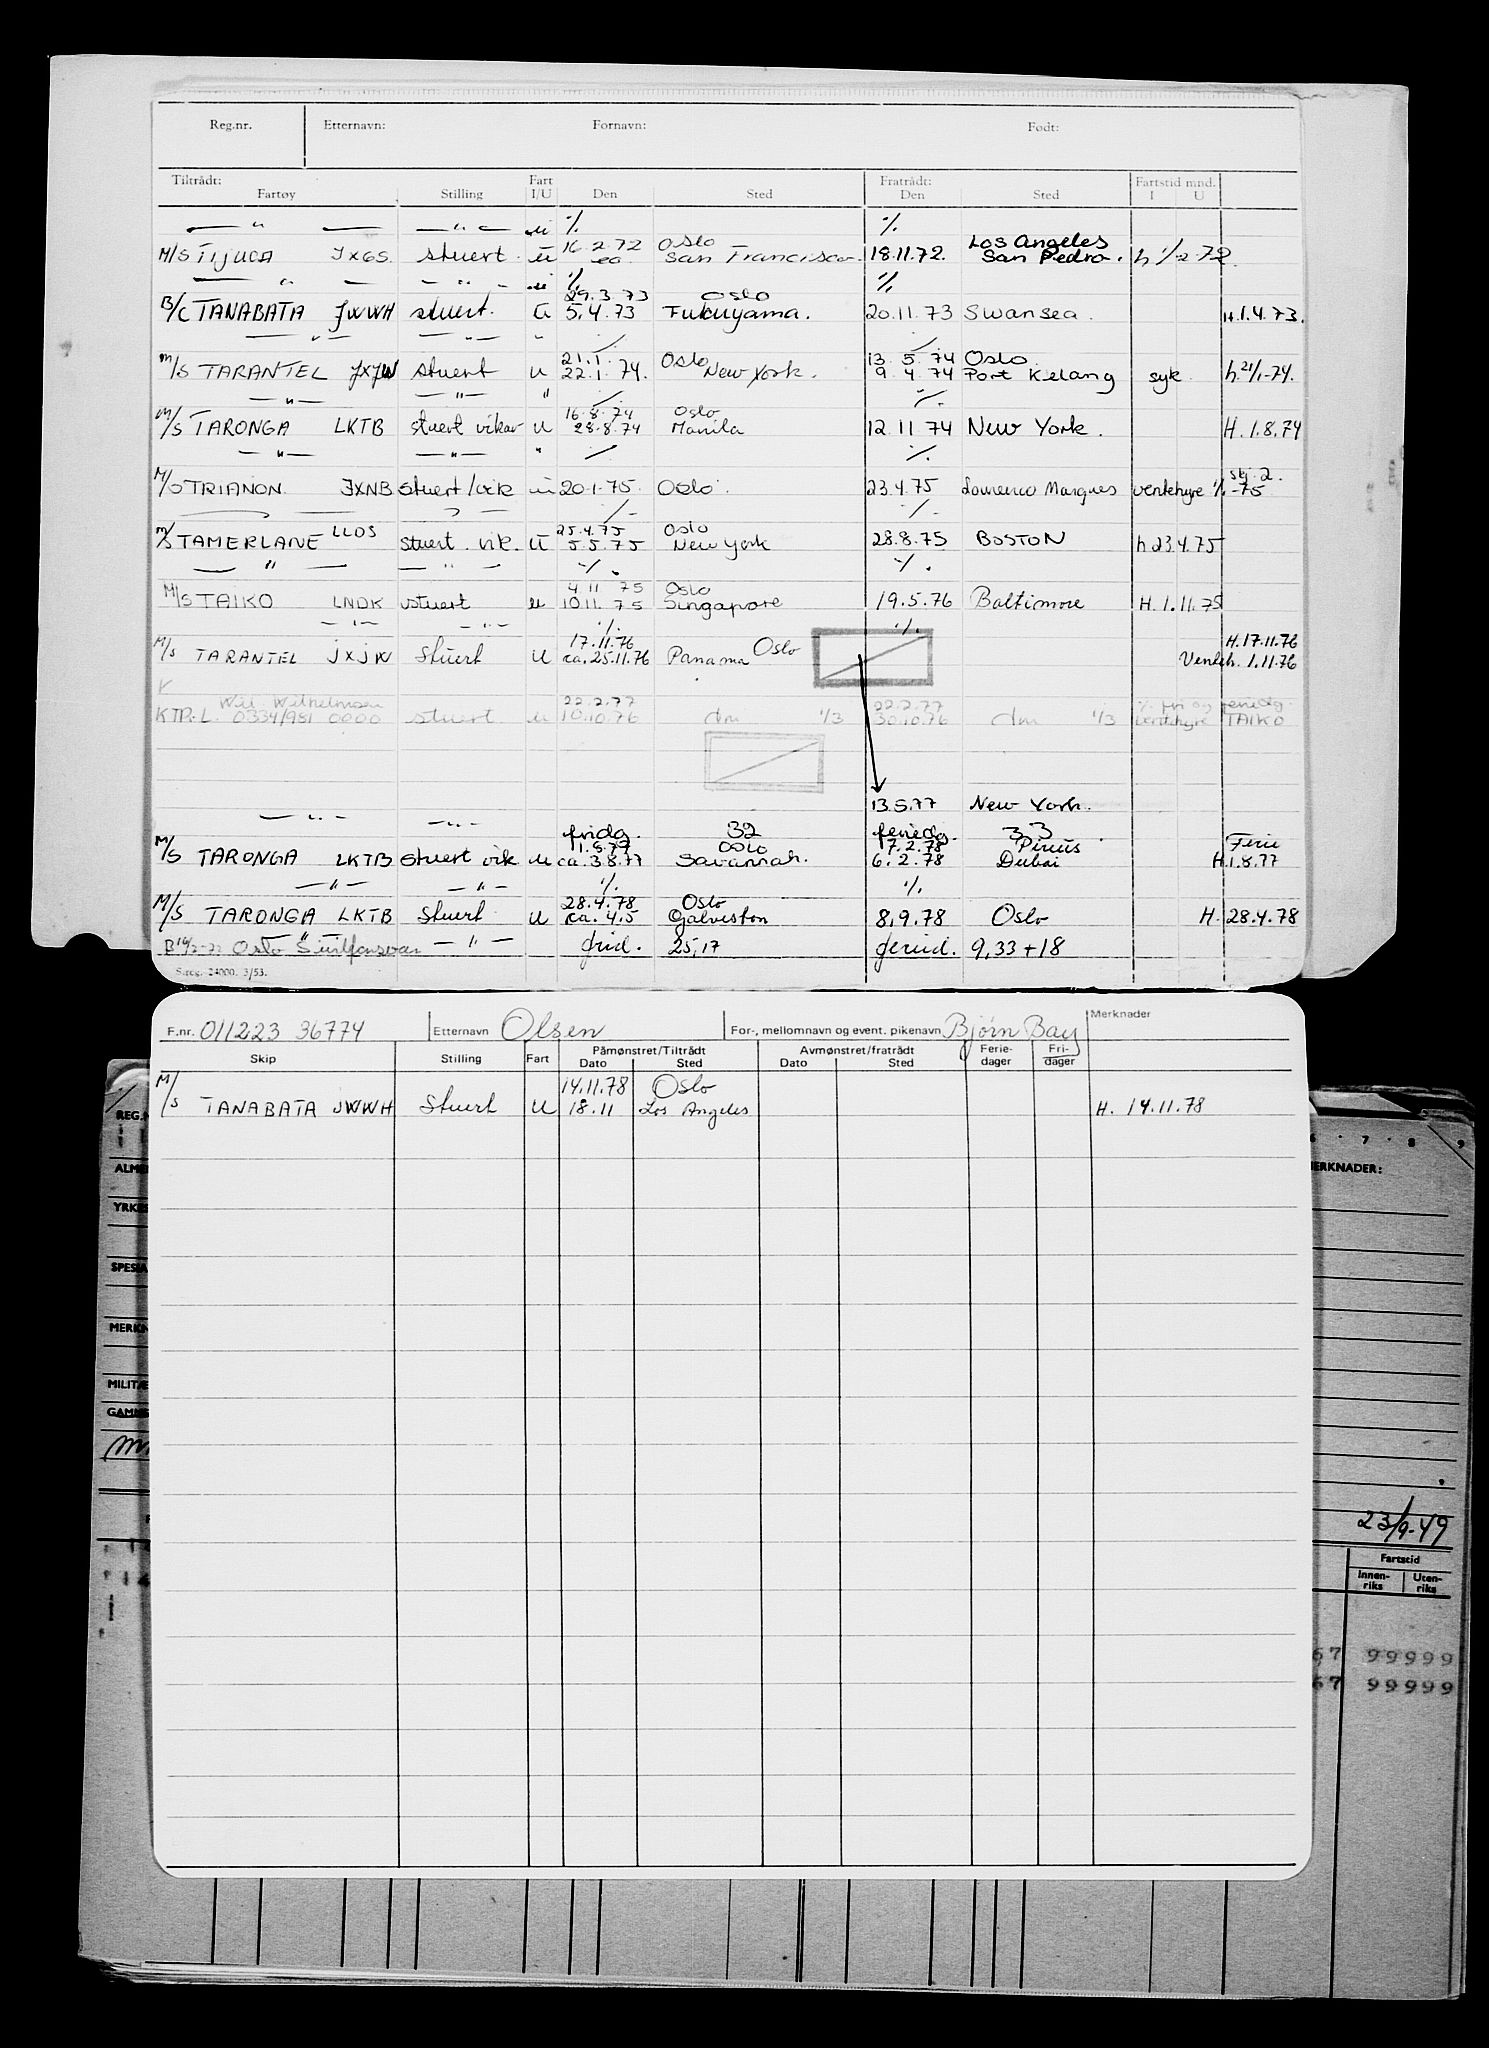 Reg.nr. Etternavn: Fornavn: Født:
Tiltrådt: Fart Fratrådt: Fartstid mnd.
Fartøy Stilling I/U Den Sted Den Sted I U
— " — — " — u % %
16.2.72 Oslo Los Angeles
M/S TIJUCA JXGS stuert u ca San Francisco 18.11.72. San Pedro. h 1/12-72.
— " — — " — u % %
29.3.73 Oslo
B/C TANABATA JWWH stuert. U 5.4.73 Fukuyama. 20.11.73 Swansea. H.1.4.73.
— " — — " — " ./. ./.
21.1. Oslo 13.5.74 Oslo
M/S TARANTEL JXJW stuert u 22.1.74. New York. 9.4.74 Port Kelang syk h.21/1-74.
— " — — " — " ./. ./.
16.8.74 Oslo
M/S TARONGA LKTB stuert vikar u 28.8.74 Manila 12.11.74 New York. H.1.8.74
— " — — " — " ./. ./.
M/S TRIANON JXNB stuert/vik u 20.1.75. Oslo. 23.4.75 Lourenco Marques ventehyre 1/1-75
./. ./.
LLOS 25.4.75 Oslo
M/S TAMERLANE stuert. vik. U 5.5.75 New York 28.8.75 BOSTON h 23.4.75
— " — — " — ./. ./.
4.11.75 Oslo
M/S TAIKO LNDK stuert u 10.11.75 Singapore 19.5.76 Baltimore H.1.11.75
— " — — " — ./. ./.
17.11.76 Oslo H.17.11.76
M/S TARANTEL JXJW Stuert u ca.25.11.76 Panama Venteh. 1.11.76
Wil Wilhelmsen 22.2.77 22.2.77 % fri og feriedg.
KTR.L. 0334/981 0000 stuert u 10.10.76 dm 1/3 30.10.76 dm 1/3 ventehyre TAIKO
13.5.77 New York.
— " — — " — fridg. 32 feriedg. 33
1.8.77 Oslo 7.2.78 Pireus Ferie
M/S TARONGA LKTB Stuert vik u ca.3.8.77 Savannah. 6.2.78 Dubai H.1.8.77
— " — — " — ./. ./.
28.4.78 Oslo
M/S TARONGA LKTB Stuert u ca. 4.5 Galveston 8.9.78 Oslo H. 28.4.78
Oslo — " — frid. 25,17 feried. 9,33+18
S.reg. 24000. 3/53.
F.nr. 011223 36774 Etternavn Olsen For-, mellomnavn og event. pikenavn Bjørn Bay Merknader
Skip Stilling Fart Påmønstret/Tiltrådt Avmønstret/fratrådt Ferie-dager Fri-dager
Dato Sted Dato Sted
14.11.78 Oslo
M/S TANABATA JWWH Stuert U 18.11 Los Angeles H. 14.11.78
REG.N
ALME
YRKES
SPESIA
MERKN
MILITÆ
GAMM
6 7 8 9
MERKNADER:
23/9-49
Fartstid
Innen-riks Uten-riks
67 99999
67 99999